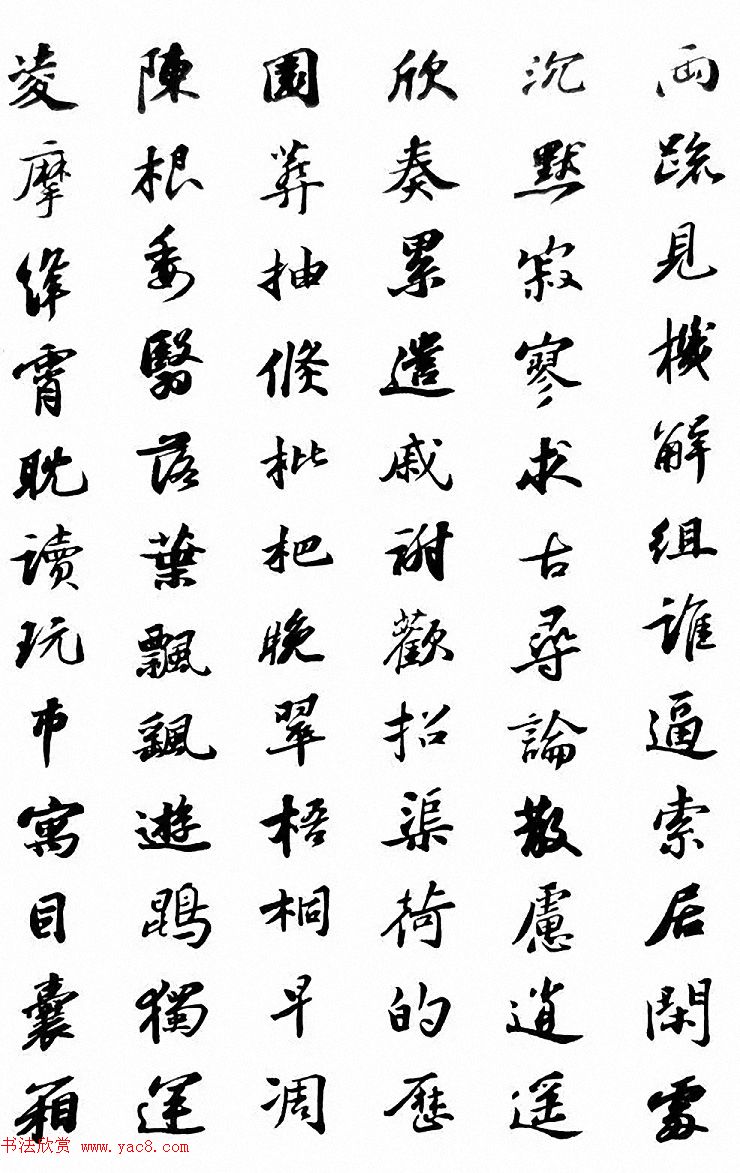 兩疏見機解組誰逼索居閑處
沉默寂寥求古尋論散慮逍遥
欣奏累遣戚謝歡招渠荷的歷
園莽抽條枇杷晚翠梧桐早凋
陳根委翳落葉飄颻遊鵾獨運
凌摩絳霄耽讀玩市寓目囊箱
书法欣赏 www.yac8.com